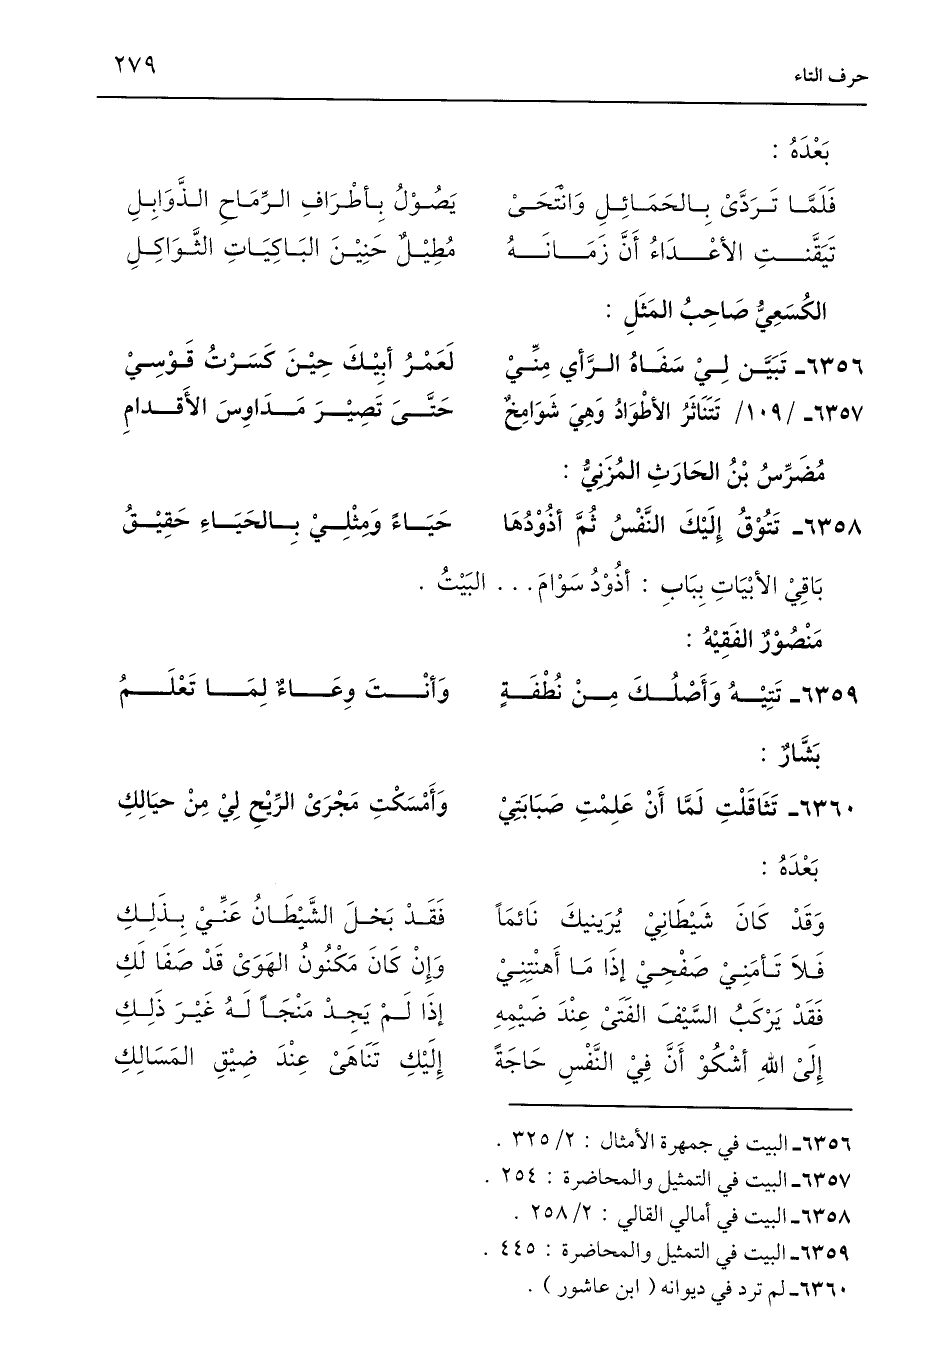 حرف التاء ٢٧٩
بَعْدَهُ :
فَلَمَّا تَرَدَّىْ بِالحَمَائِلِ وَانْتَحَىْ يَصُوْلُ بِأطْرَافِ الرِّمَاحِ الذَّوَابِلِ
تَيَقَّنتِ الأعْدَاءُ أنَّ زَمَانَهُ مُطِيْلٌ حَنِيْنَ البَاكِيَاتِ الثَّوَاكِلِ
الكُسَعِيُّ صَاحِبُ المَثَلِ :
٦٣٥٦ـ تَبَيَّن لِيْ سَفَاهُ الرَّأي مِنِّيْ لَعَمْرُ أبِيْكَ حِيْنَ كَسَرْتُ قَوْسِيْ
٦٣٥٧ـ /١٠٩/ تَتَنَاثَرُ الأطْوَادُ وَهِيَ شَوَامِخٌ حَتَّىَ تَصِيْرَ مَدَاوِسَ الأَقْدَامِ
مُضَرِّسُ بْنُ الحَارَثِ المُزَنِيُّ :
٦٣٥٨ـ تَتُوْقُ إلَيْكَ النَّفْسُ ثُمَّ أذُوْدُهَا حَيَاءً وَمِثْلِيْ بِالحَيَاءِ حَقِيْقُ
بَاقِيْ الأبْيَاتِ بِبَابِ : أذُوْدُ سَوْامَ... البَيْتُ .
مَنْصُوْرٌ الفَقِيْهُ :
٦٣٥٩ـ تَتِيْهُ وَأَصْلُكَ مِنْ نُطْفَةٍ وَأنْتَ وِعَاءٌ لِمَا تَعْلَمُ
بَشَّارٌ :
٦٣٦٠ـ تَثَاقَلْتِ لَمَّا أَنْ عَلِمْتِ صَبَابَتِيْ وَأَمْسَكْتِ مَجْرَىْ الرِّيْحِ لِيْ مِنْ حيَالِكِ
بَعْدَهُ :
وَقَدْ كَانَ شَيْطَانِيْ يُرَينيكَ نَائمَاً فَقَدْ بَخلَ الشَّيْطَانُ عَنِّيْ بِذَلِكِ
فَلاَ تَأمَنِيْ صَفْحِيْ إذَا مَا أَهنْتِنِيْ وَإنْ كَانَ مَكْنُونُ الهَوَىْ قَدْ صَفَا لَكِ
فَقَدْ يَرْكَبُ السَّيْفَ الفَتَىْ عِنْدَ ضَيْمِهِ إذَا لَمْ يَجِدْ مَنْجَاً لَهُ غَيْرَ ذَلِكِ
إلَىْ اللهِ أشْكُوْ أنَّ فِيْ النَّفْسِ حَاجَةً إلَيْكِ تَنَاهَىْ عِنْدَ ضِيْقِ المَسَالِكِ
٦٣٥٦ـ البيت في جمهرة الأمثال : ٢/ ٣٢٥ .
٦٣٥٧ـ البيت في التمثيل والمحاضرة : ٢٥٤ .
٦٣٥٨ـ البيت في أمالي القالي : ٢/ ٢٥٨ .
٦٣٥٩ـ البيت في التمثيل والمحاضرة : ٤٤٥ .
٦٣٦٠ـ لم ترد في ديوانه ( ابن عاشور ) .